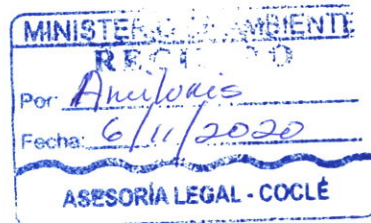 MINISTERIO DE AMBIENTE
RECIBIDO
Por:
Fecha: 6/11/2020
ASESORÍA LEGAL - COCLÉ